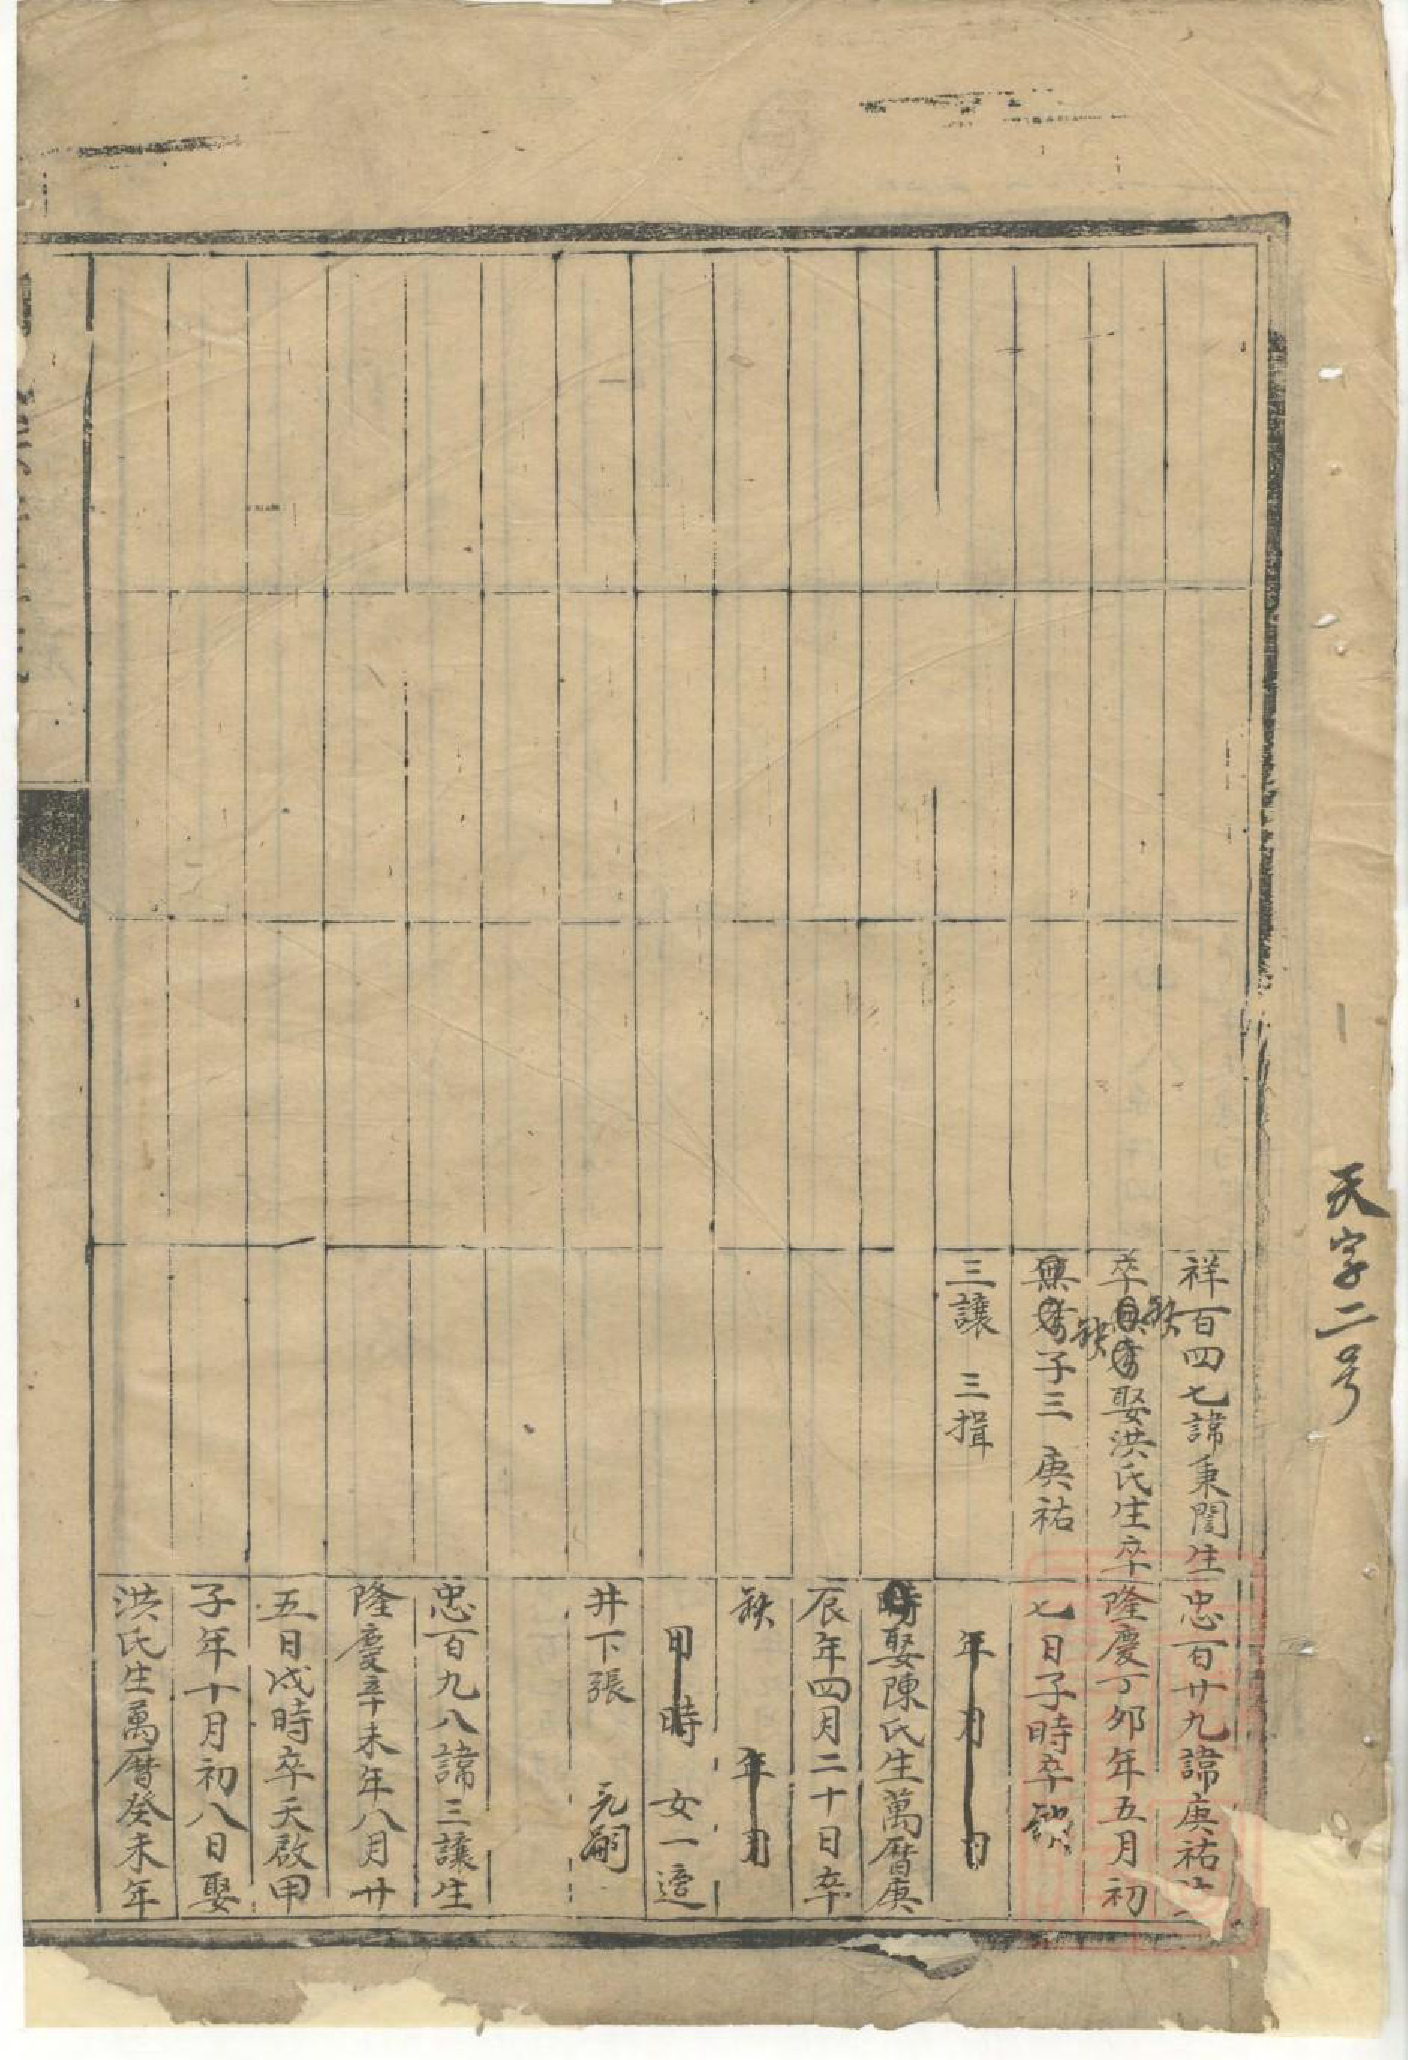 天字二号
祥百四七諱秉誾生
卒缺娶洪氏生卒
缺子三 庚祐
三讓 三揖
忠百廿九諱庚祐生
隆慶丁卯年五月初
七日子時卒缺
年月日
娶陳氏生萬曆庚
辰年四月二十日卒
缺 年月
日時 女一適
井下張 元嗣
忠百九八諱三讓生
隆慶辛未年八月廿
五日戌時卒天啟甲
子年十月初八日娶
洪氏生萬曆癸未年